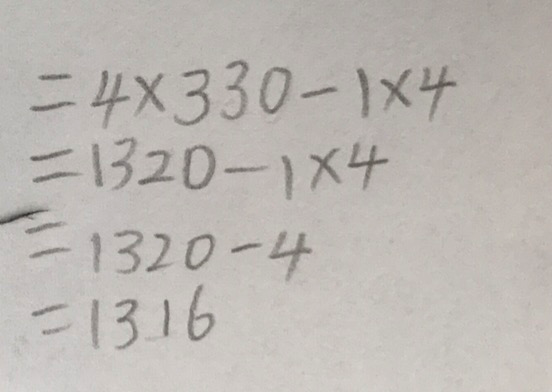 =4×330-1×4
=1320-1×4
=1320-4
=1316